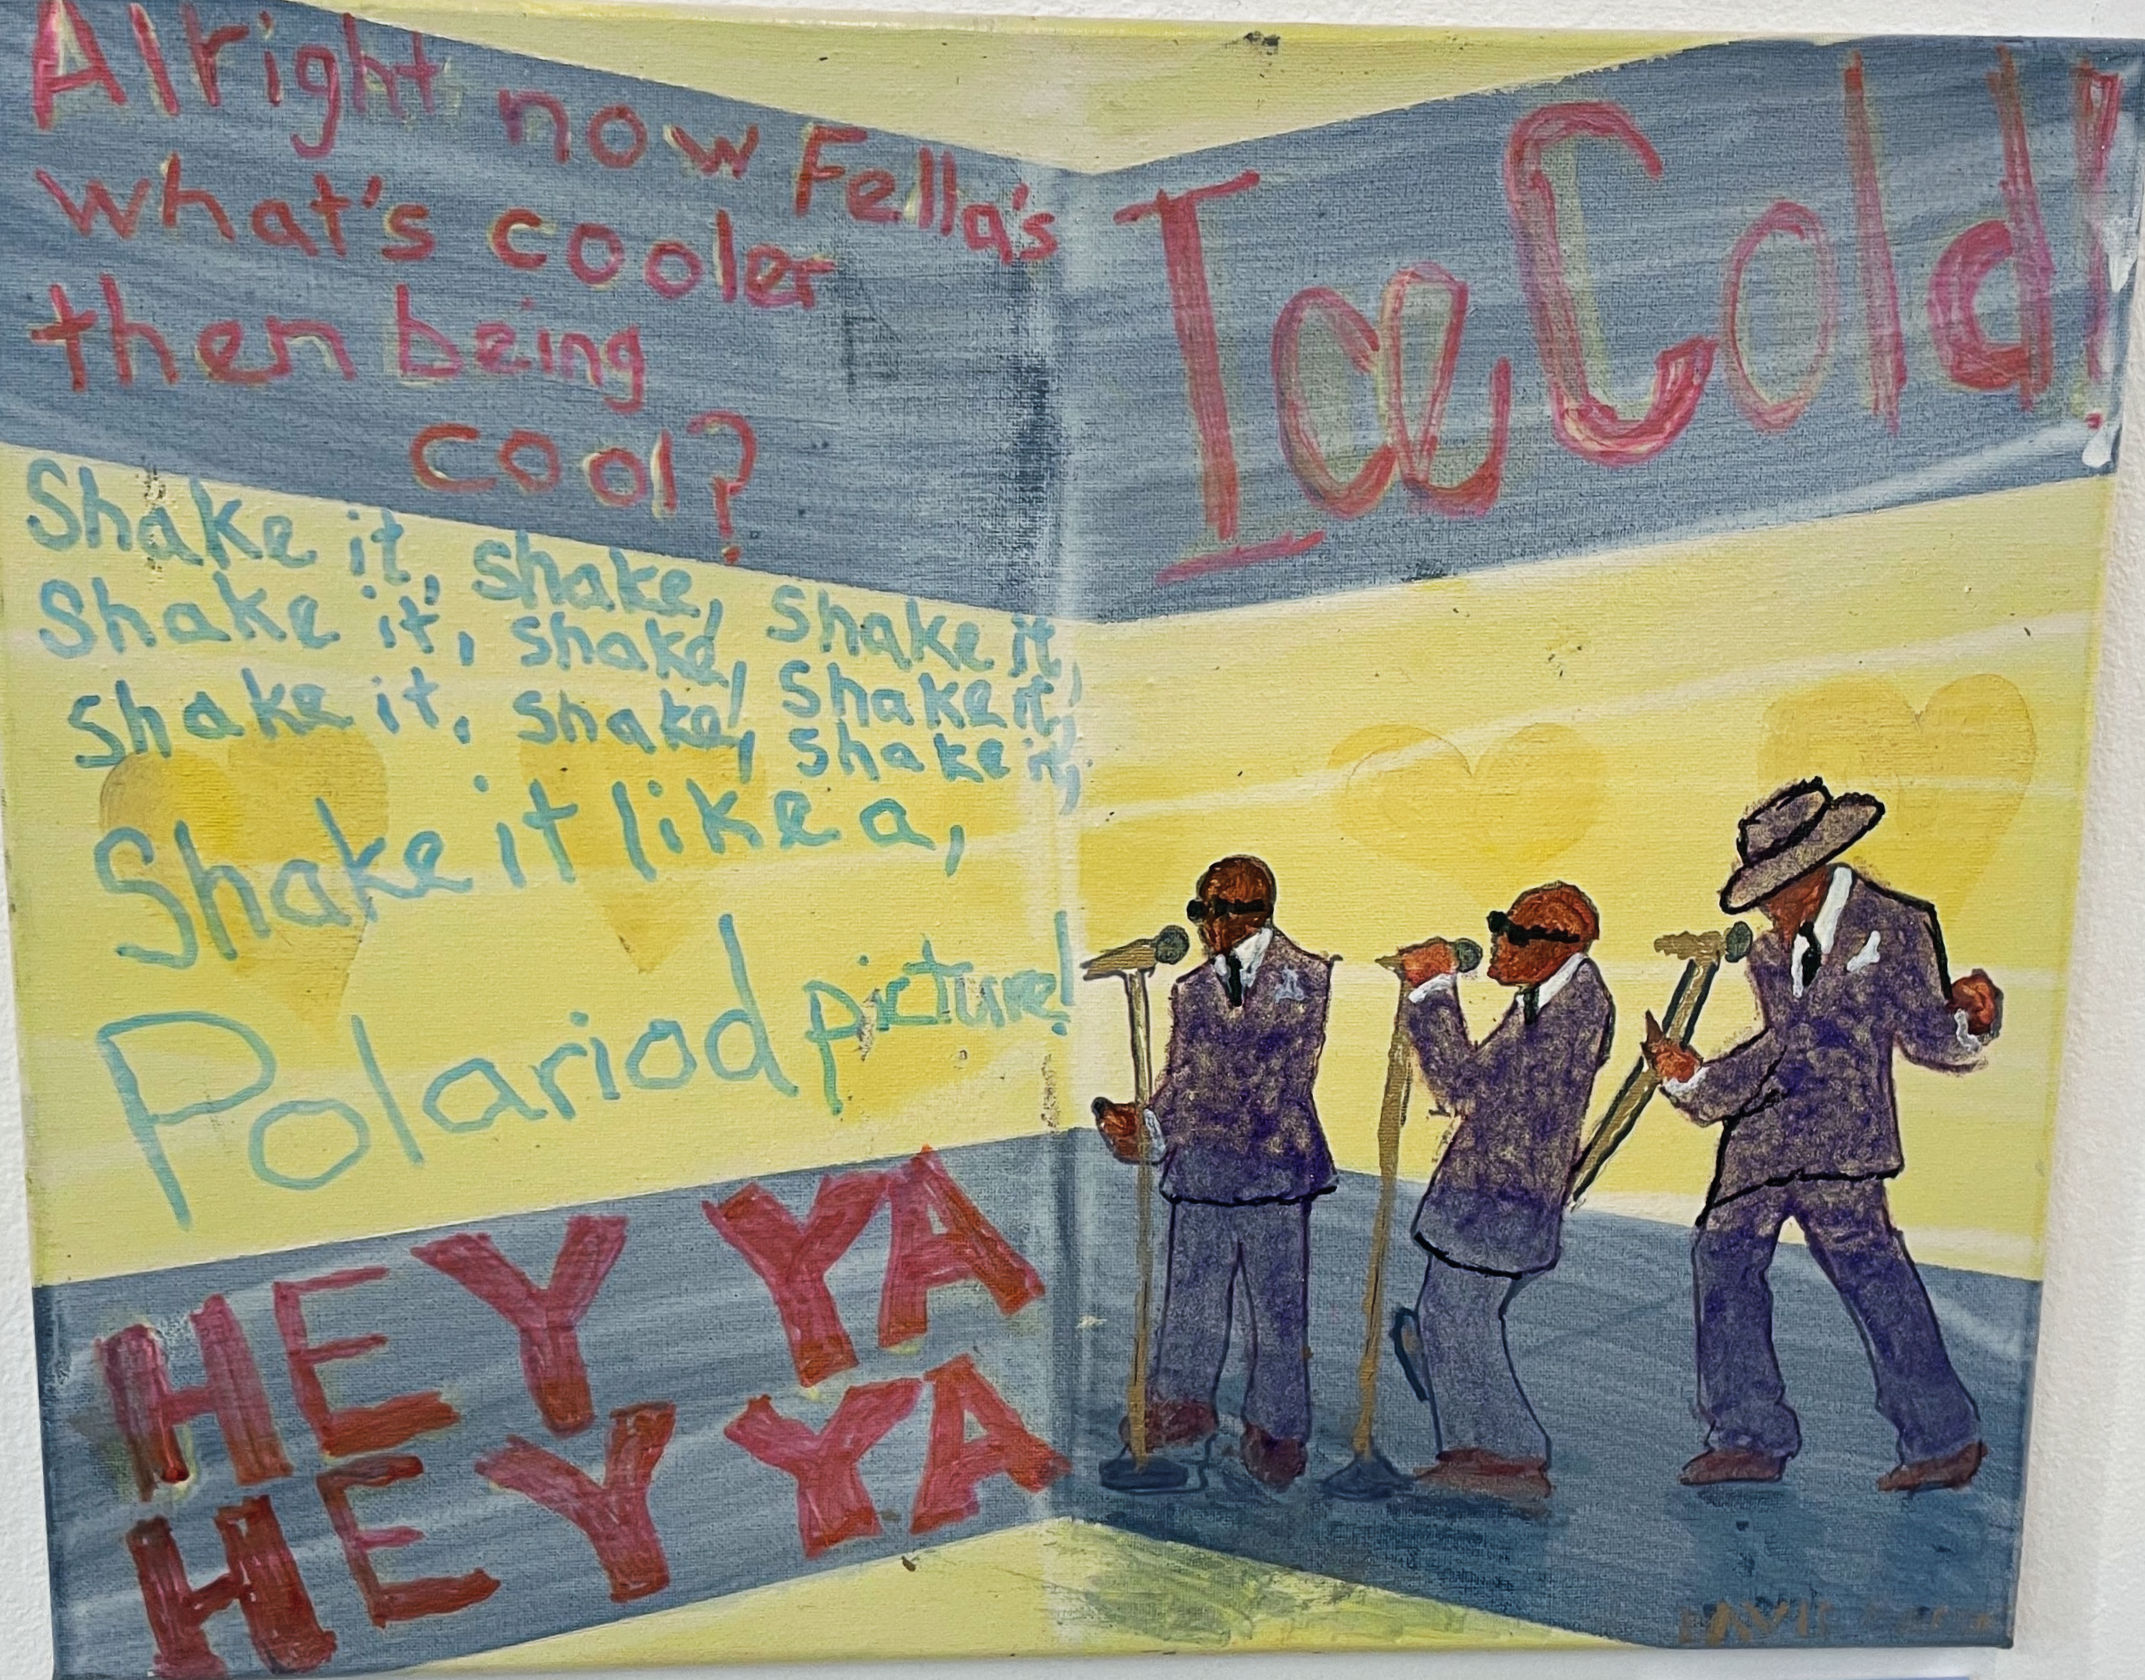 Alright now Fella's
what's cooler
then being
cool?
Ice Cold!
Shake it, shake, shake it,
Shake it, shake, shake it,
shake it, shake, shake it,
Shake it like a,
Polariod picture!
HEY YA
HEY YA